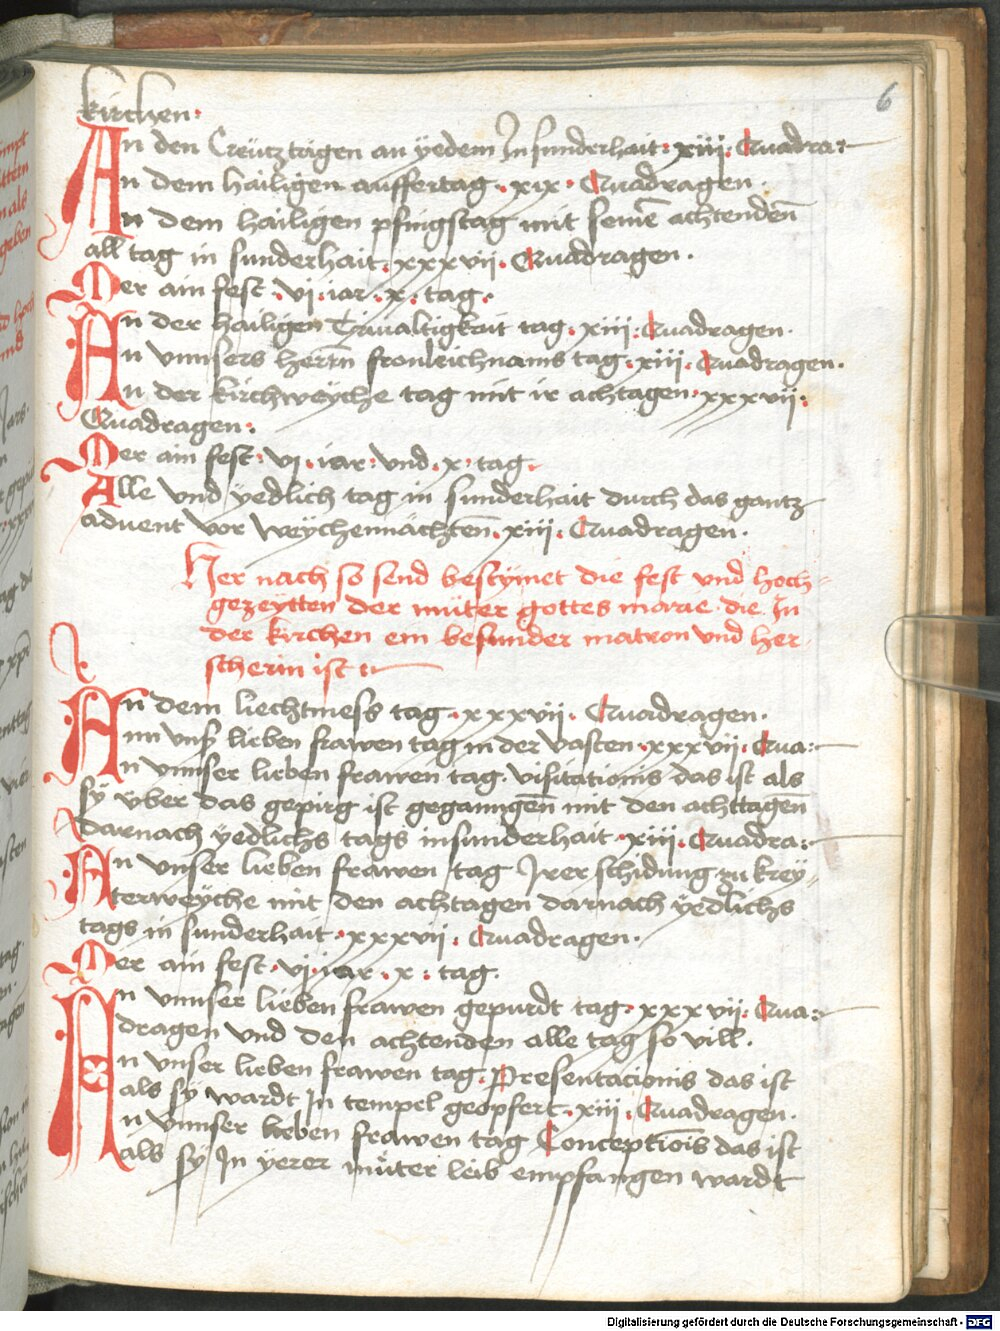 6
kirchen·
An den Creutztägen an yedem In sunderhait· xiiii· Quadra:
An dem hailigen auffertag· xix· Quadragen·
An dem hailigen pfingstag mit seinē achtendenn
all tag in sunderhait· xxxvii· Quadragen·
Mer ain fest· vi· iar· x· tag·
An der hailigen Triualtigkait tag· xiii· Quadragen·
An vnnsers herrn fronleichnams tag· xiii· Quadragen·
An der kirchweyche tag mit ir achtagen· xxxvii·
Quadragen·
Mer ain fest· vi· iar· vnd· x· tag·
Alle vnd yedlich tag in sunderhait durch das gantz
aduent vor weychennächten· xiii· Quadragen·
Her nach so send bestymet die fest vnd hoch-
gezeytten der müter gottes marie die In
der kirchen ein besunder matron vnd her-
scherin ist
An dem liechtmess tag· xxxvii· Quadragen·
Ann vnsr lieben frawen tag in der vasten· xxxvii· Qua:
An vnnser lieben frawen tag· visitationis das ist als
sy über das gepirg ist geganngen mit den achttagen
darnach yedlichs tags insunderhait· xiii· Quadra:
An vnser lieben frawen tag Irer schidung zu krey-
terweyche mit den achtagen darnach yedlichs
tags in sunderhait· xxxvii· Quadragen·
Mer ain fest· vi· iar· x· tag·
An vnnser lieben frawen gepurdt tag· xxxvii· Qua:
dragen vnd den achtenden alle tag so vill·
An vnser lieben frawen tag· Presentacionis das ist
als sy wardt In tempel geopfert· xiii· Quadragen·
An vnnser lieben frawen tag Conceptiōis das ist
als sy In yerer müter leib empfangen wardt
Digitalisierung gefördert durch die Deutsche Forschungsgemeinschaft - DFG